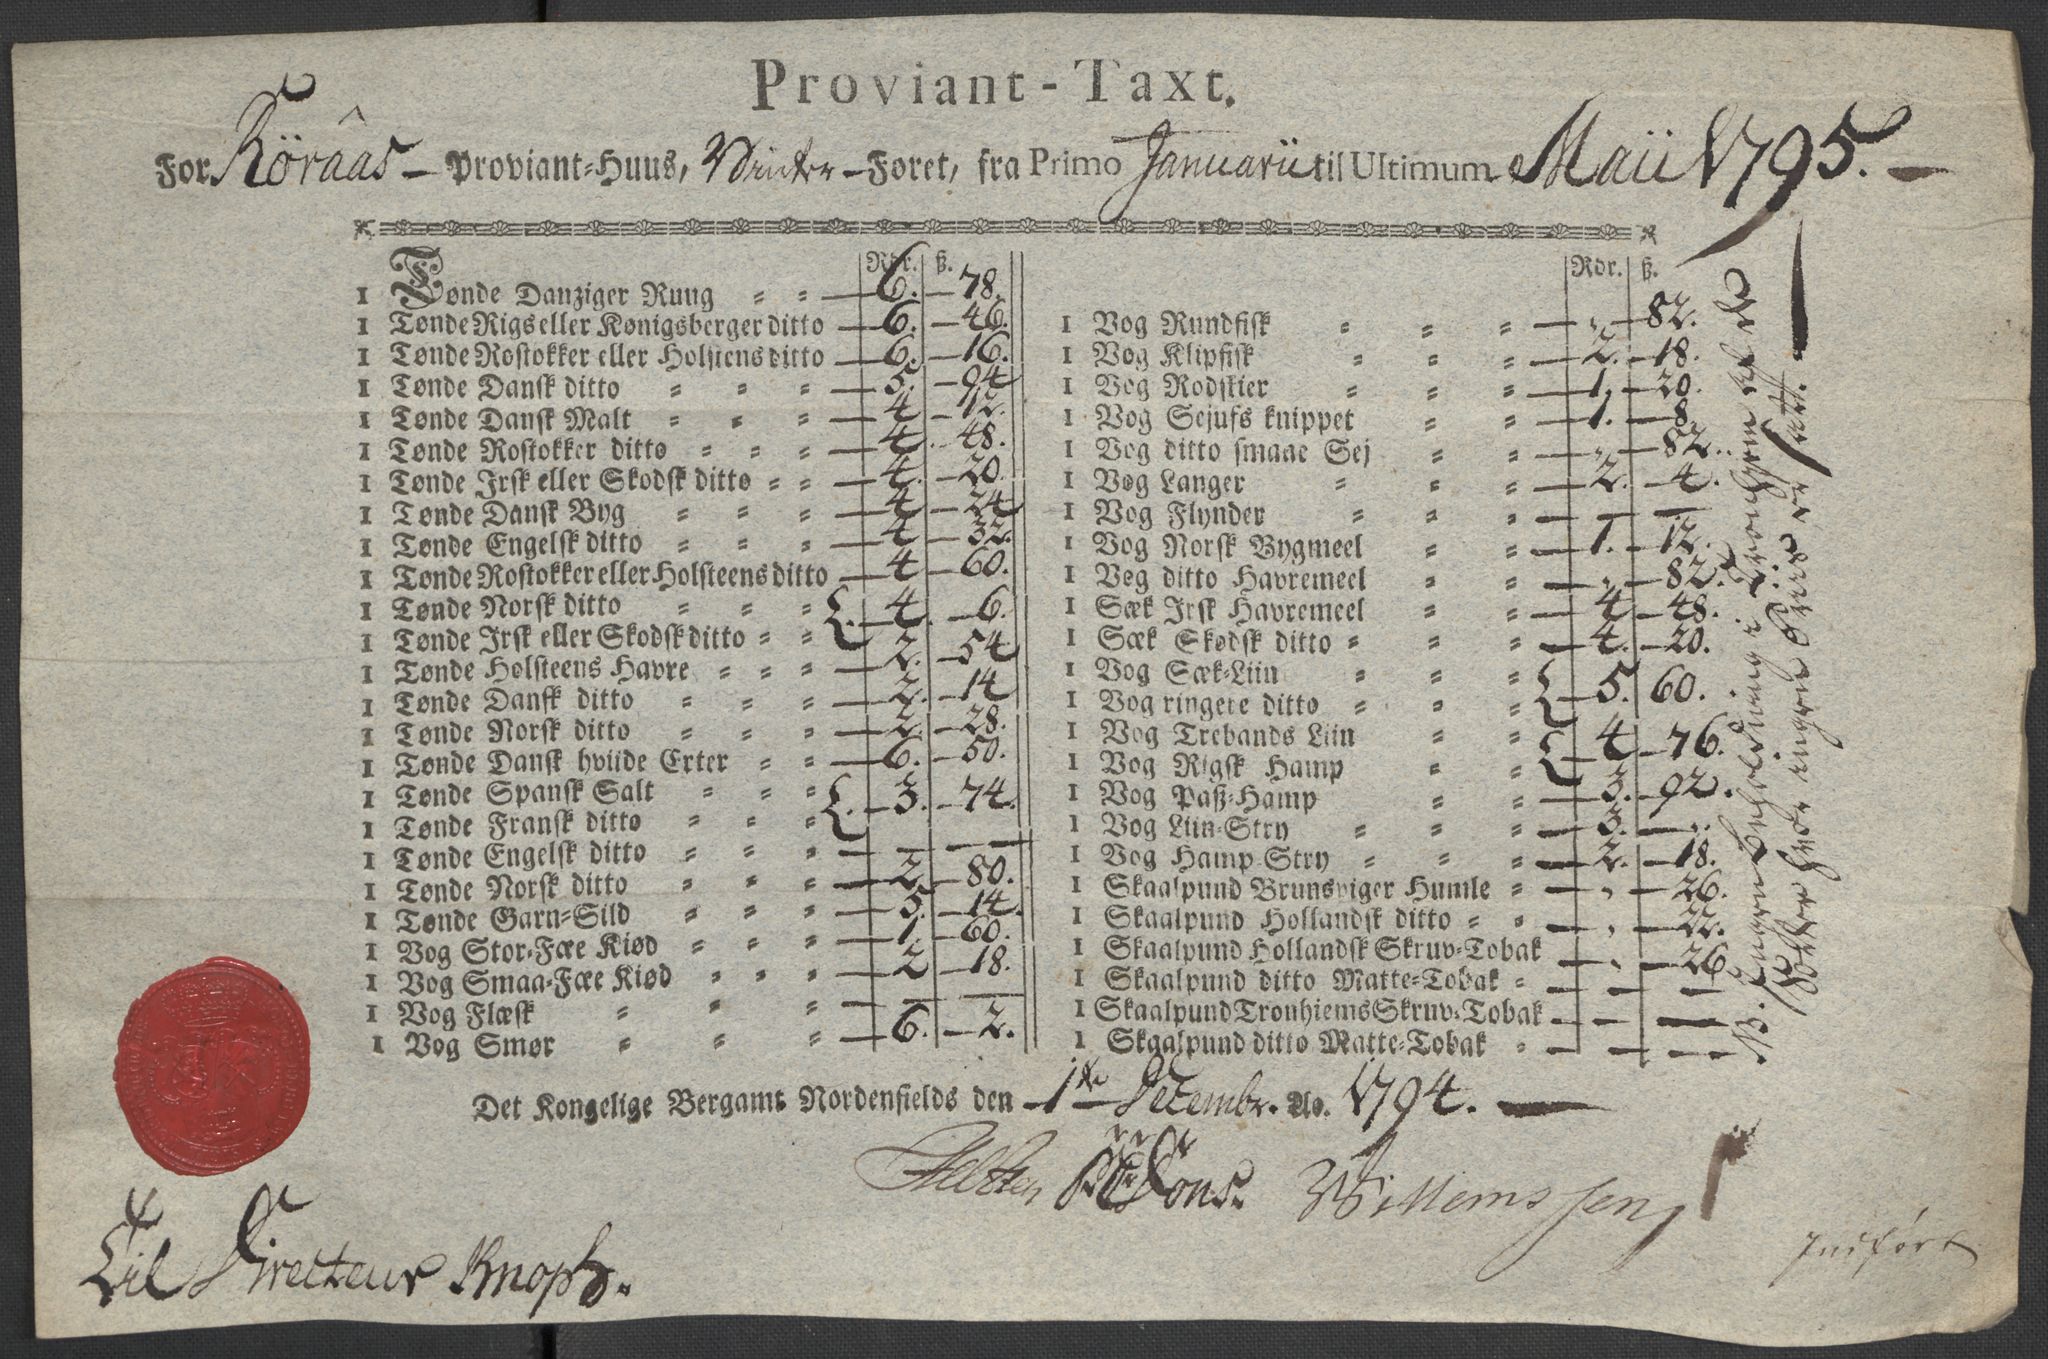 Proviant-Taxt.
For Röraas Proviant-Huus, Winter-Foret, fra Primo Januarii til Ultimum Maii 1795.
Rdr. ß.
1 Tønde Danziger Ruug 6. 78.
1 Tønde Rigs eller Kønigsberger ditto 6. 46.
1 Tønde Rostokker eller Holstens ditto 6. 16.
1 Tønde Dansk ditto 5. 94
1 Tønde Dansk Malt 4 12.
1 Tønde Rostokker ditto 4. 48.
1 Tønde Irsk eller Skodsk ditto 4. 20.
1 Tønde Dansk Byg 4 24
1 Tønde Engelsk ditto 4 32.
1 Tønde Rostokker eller Holsteens ditto 4 60.
1 Tønde Norsk ditto 4. 6.
1 Tønde Irsk eller Skodsk ditto
1 Tønde Holsteens Havre 2. 54
1 Tønde Dansk ditto 2. 14
1 Tønde Norsk ditto 2. 28.
1 Tønde Dansk hviide Erter 6. 50.
1 Tønde Spansk Salt 3. 74.
1 Tønde Fransk ditto
1 Tønde Engelsk ditto — —
1 Tønde Norsk ditto 2. 80.
1 Tønde Garn-Sild 5. 14.
1 Vog Stor-Fæe Kiød 1. 60.
1 Vog Smaa-Fæe Kiød 2 18.
1 Vog Flæsk — —
1 Vog Smør 6. 2.
Rdr. ß.
1 Vog Rundfisk 82.
1 Vog Klipfisk 2. 18.
1 Vog Rodskier 1. 20.
1 Vog Sejufs knippet 1. 8.
1 Vog ditto smaae Sej 82.
1 Vog Langer 2. 4.
1 Vog Flynder — —
1 Vog Norsk Bygmeel 1. 12.
1 Vog ditto Havremeel 82.
1 Sæk Irsk Havremeel 4 48.
1 Sæk Skodsk ditto 4. 20.
1 Vog Sæk-Liin 5. 60.
1 Vog ringere ditto
1 Vog Trebands Liin 4 76.
1 Vog Rigsk Hamp
1 Vog Paß-Hamp 3. 92.
1 Vog Liin-Stry 3.
1 Vog Hamp-Stry 2. 18.
1 Skaalpund Brunsviger Humle 26.
1 Skaalpund Hollandsk ditto 22.
1 Skaalpund Hollandsk Skruv-Tobak 26
1 Skaalpund ditto Matte-Tobak — —
1 Skaalpund Tronhiems Skruv-Tobak — —
1 Skaalpund ditto Matte-Tobak — —
ingen beholdning i Tronhjem
ingen Priis er satt.
Det Kongelige Bergamt Nordenfields den 1te Decembr. Ao. 1794.
Willemssen
Til Directeur Knoph.
Indført